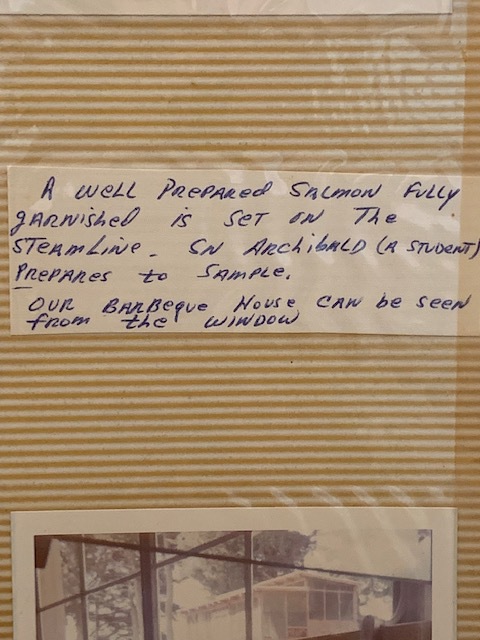 A WELL PREPARED SALMON FULLY
GARNISHED IS SET ON THE
STEAMLINE. SN ARCHIBALD (A STUDENT)
PREPARES TO SAMPLE.
OUR BARBEQUE HOUSE CAN BE SEEN
FROM THE WINDOW